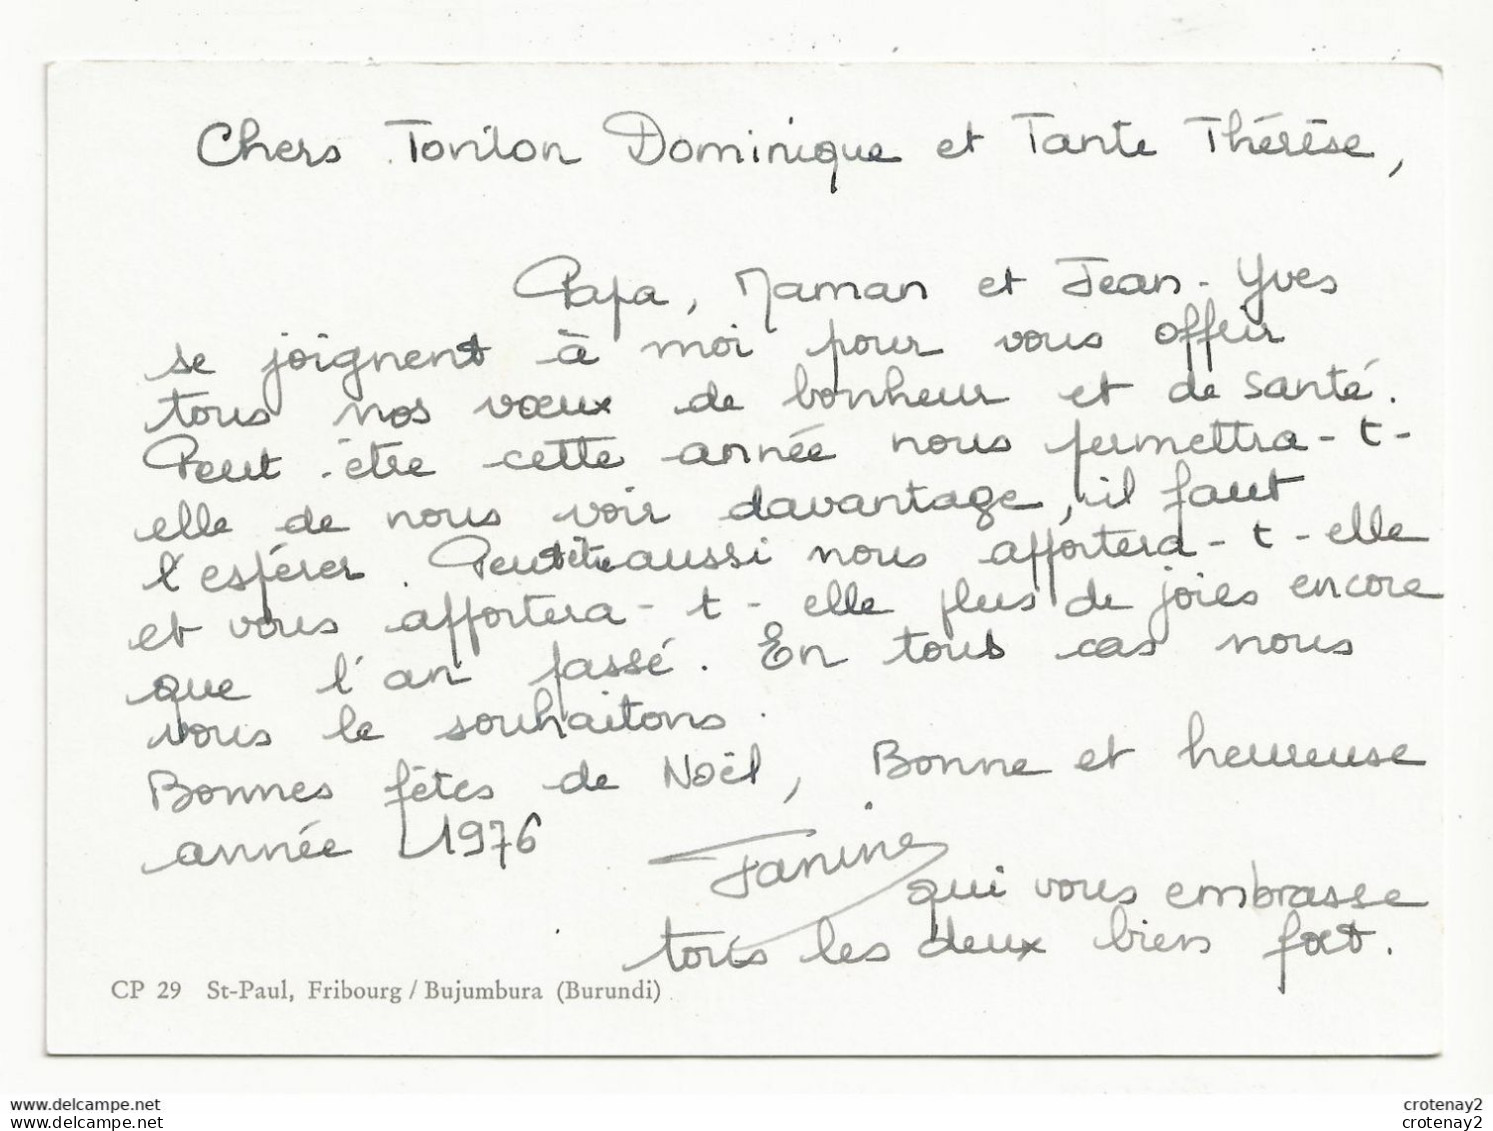 Chers Tonton Dominique et Tante Thérèse,
Papa, Maman et Jean-Yves
se joignent à moi pour vous offrir
tous nos vœux de bonheur et de santé.
Peut être cette année nous permettra-t-
elle de nous voir davantage, il faut
l'espérer. Peut être aussi nous apportera-t-elle
et vous apportera-t-elle plus de joies encore
que l'an passé. En tous cas nous
vous le souhaitons.
Bonnes fêtes de Noël, Bonne et heureuse
année 1976
Janine
qui vous embrasse
tous les deux bien fort.
CP 29 St-Paul, Fribourg / Bujumbura (Burundi)
www.delcampe.net
www.delcampe.net
crotenay2
crotenay2